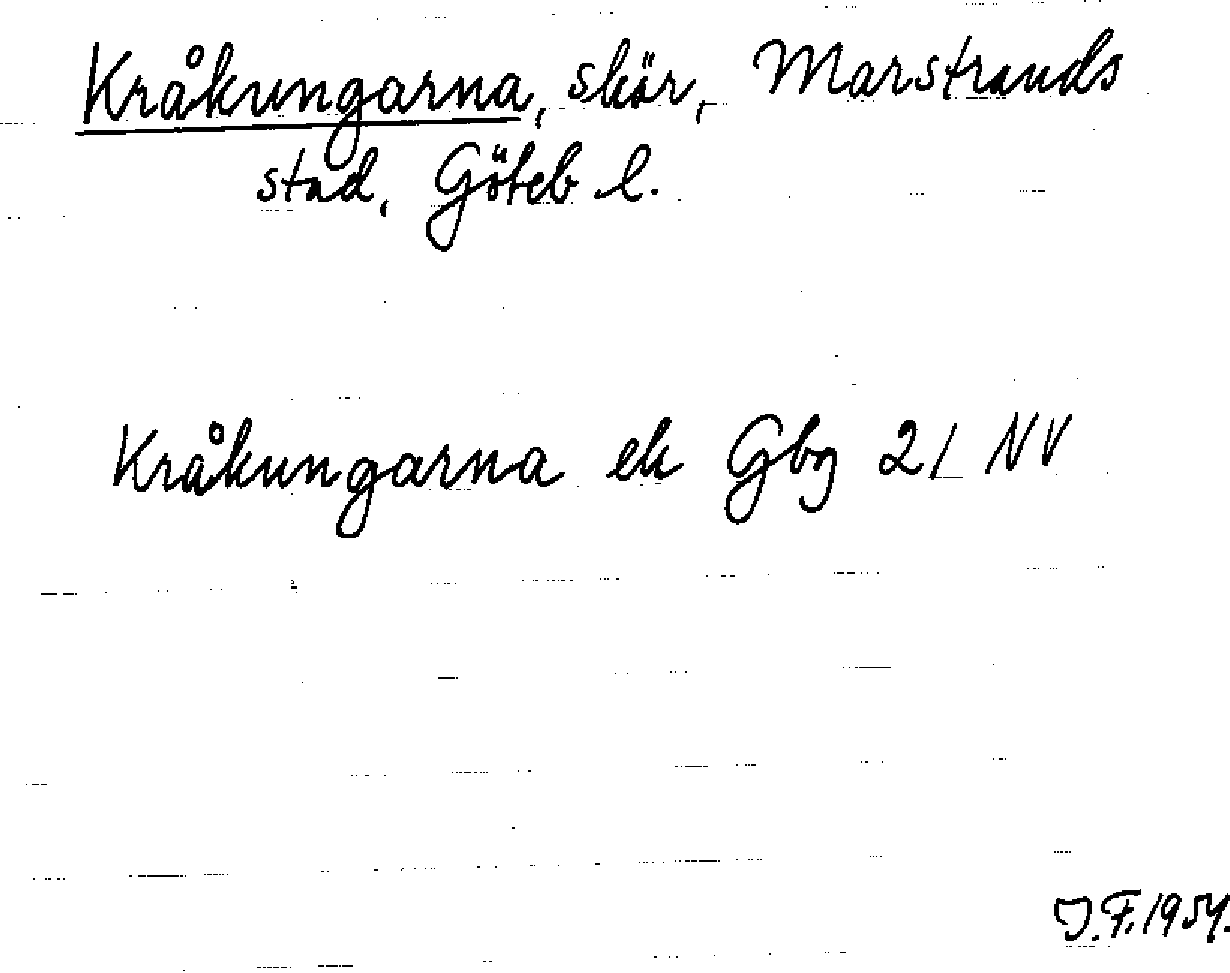 Kråkungarna, skär, Marstrands
stad, Göteb l.
Kråkungarna ek Gbg 21 NV
J.F. 1954.